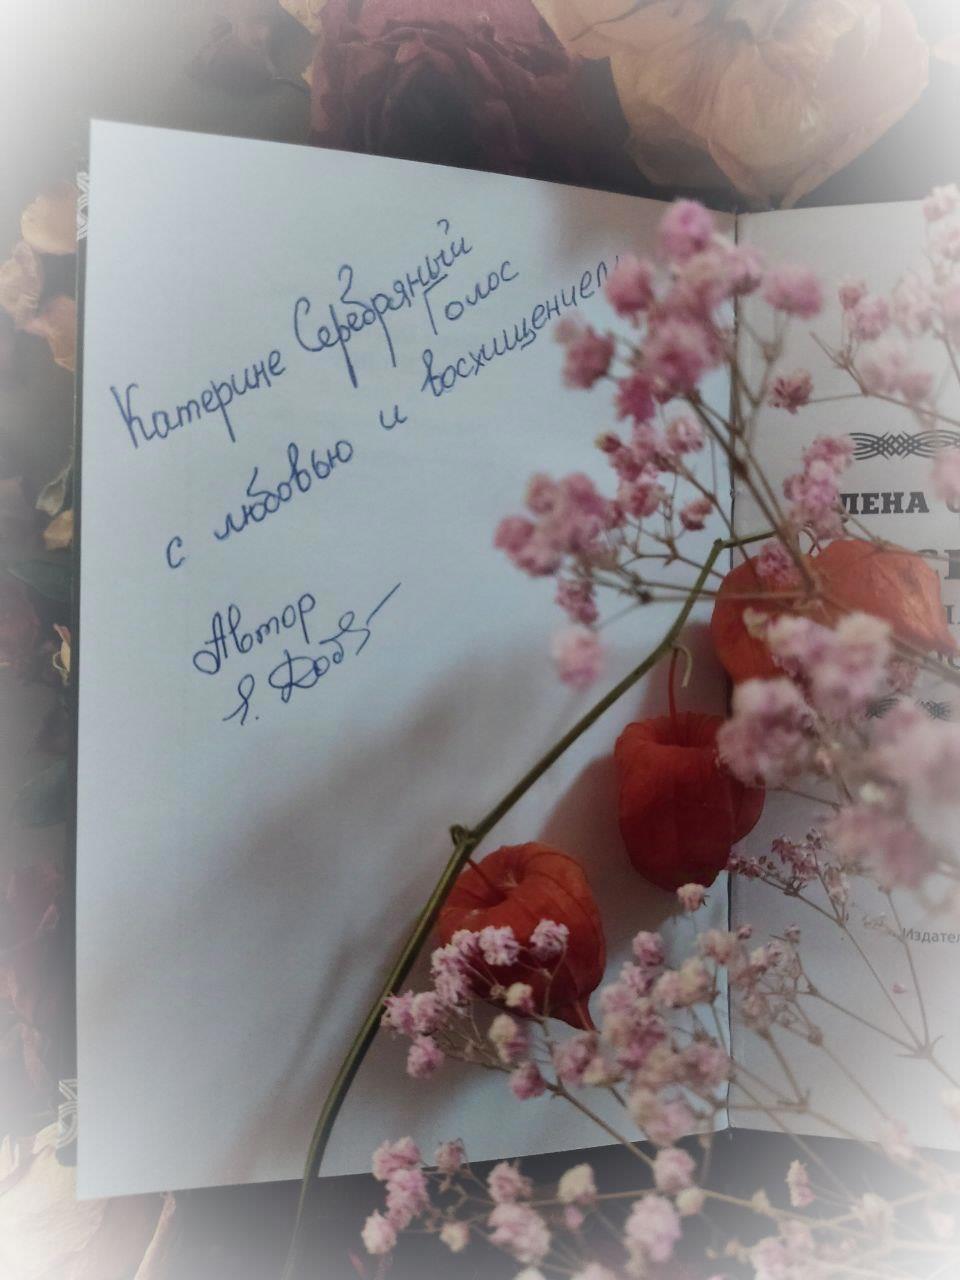 Катерине Серебряный
Голос
с любовью и восхищением
Автор
ЛЕНА
Издател